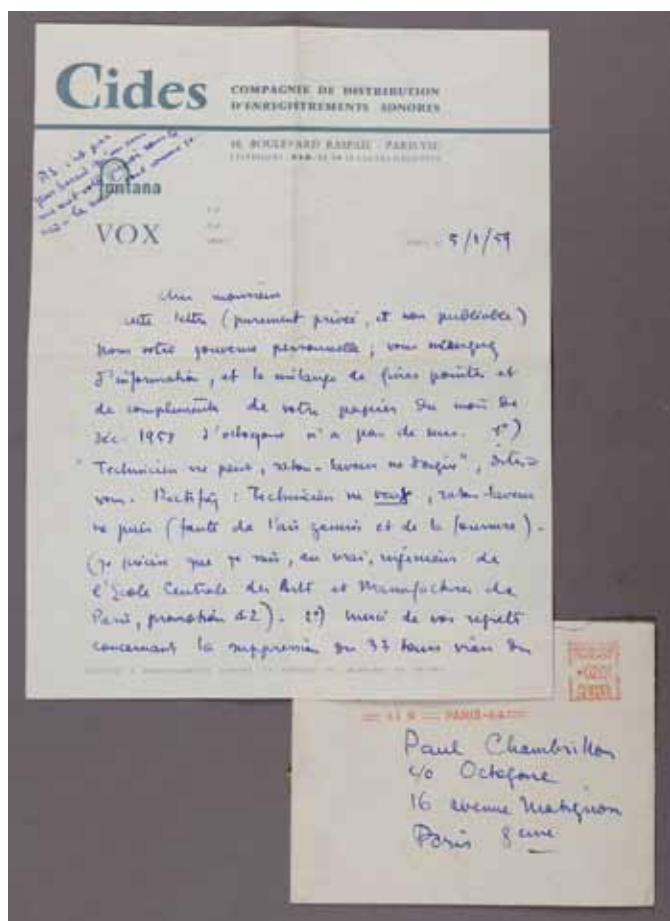 Cides
COMPAGNIE DE DISTRIBUTION
D'ENREGISTREMENTS SONORES
BOULEVARD RASPAIL - PARIS VII
Fontana
VOX
5/1/59
cher monsieur
cette lettre (purement privée, et non publiable)
pour votre gouverne personnelle ; vous manquez
d'information, et le mélange de fines pointes et
de compliments de votre papier du mois de
déc. 1958 d'octogone n'a pas de sens. 1°)
"Technicien ne peut, raton-laveur ne daigne",
vous. Rectifiez : Technicien ne veux, raton-laveur
ne puis (faute de l'air et de la fourrure).
(je précise que je suis, au vrai, ingénieur de
l'Ecole Centrale des Arts et Manufactures de
Paris, promotion 42). 2°) merci de vos regrets
concernant la suppression du 33 tours vian du
PARIS
Paul Chambrillon
c/o Octogone
16 avenue Matignon
Paris 8 eme